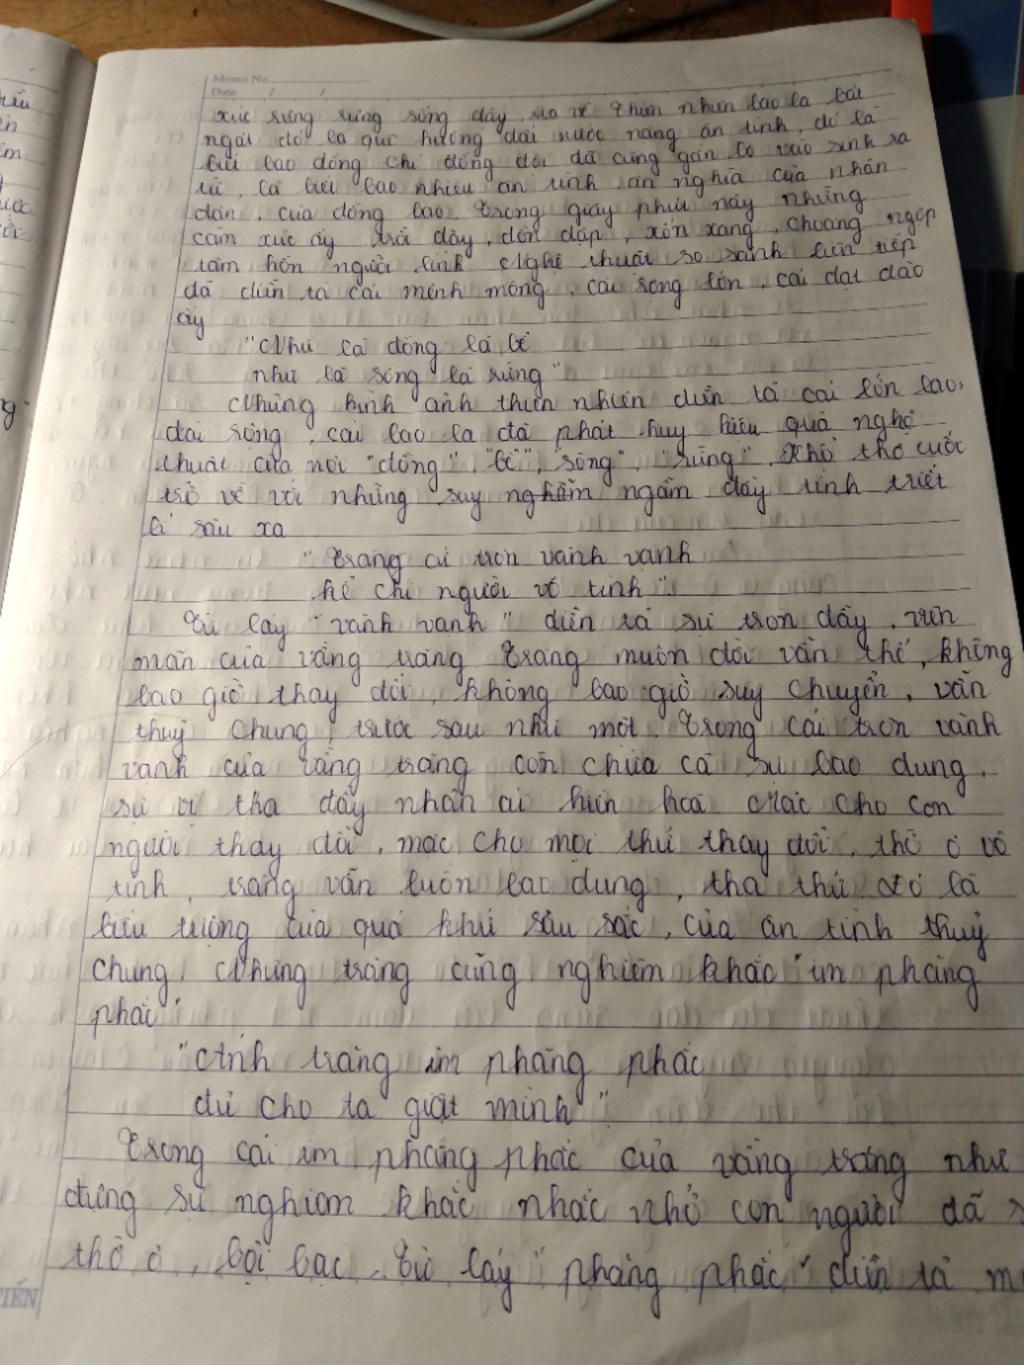 Memo No.
Date / /
xúc rưng rưng sống dậy, vừa về thiên nhiên bao la bát
ngát đó là quê hương đất nước nặng ân tình, đó là
bài lao động chi đồng đội đã cùng gắn bó vào sinh ra
tử, là biết bao nhiêu ân tình ân nghĩa của nhân
dân, của đồng bào. Trong giây phút này những
cảm xúc ấy trỗi dậy, dồn dập, xốn xang, choáng ngợp
tâm hồn người lính. Nghệ thuật so sánh liên tiếp
đã diễn tả cái mênh mông, cái rộng lớn, cái dạt dào
ấy
"Như là đồng là bể
như là sông là rừng"
Những hình ảnh thiên nhiên diễn tả cái lớn lao,
dài rộng, cái bao la đã phát huy hiệu quả nghệ
thuật của nói "đồng", "bể", "sông", "rừng". Khổ thơ cuối
trở về với những suy nghẫm ngẫm đầy tính triết
lí sâu xa
"Trăng cứ tròn vành vạnh
kể chi người vô tình"
Từ láy "vành vạnh" diễn tả sự tròn đầy, viên
mãn của vầng trăng. Trăng muôn đời vẫn thế, không
bao giờ thay đổi, không bao giờ suy chuyển, vẫn
thuỷ chung, trước sau như một. Trong cái tròn vành
vạnh của vầng trăng còn chứa cả sự bao dung,
sự vị tha đầy nhân ái hiền hoà. Mặc cho con
người thay đổi, mặc cho mọi thứ thay đổi, thờ ơ vô
tình, trăng vẫn luôn bao dung, tha thứ. Đó là
biểu tượng của quá khứ sâu sắc, của ân tình thuỷ
chung. Nhưng trăng cũng nghiêm khắc "im phăng
phắc"
"Ánh trăng im phăng phắc
đủ cho ta giật mình"
Trong cái im phăng phắc của vầng trăng như
đựng sự nghiêm khắc nhắc nhở con người đã
thờ ơ, bội bạc. Từ láy "phăng phắc" diễn tả
TIẾN